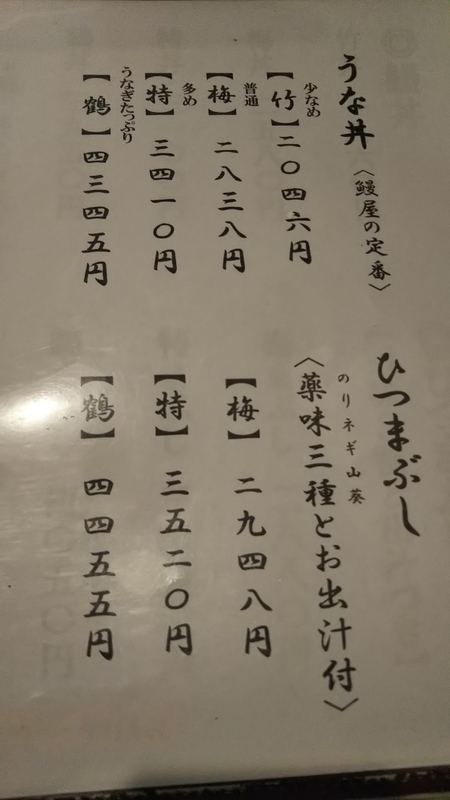 うな丼
〈鰻屋の定番〉
少なめ
【竹】二〇四六円
普通
【梅】二八三八円
多め
【特】三四一〇円
うなぎたっぷり
【鶴】四三四五円
ひつまぶし
のりネギ山葵
〈薬味三種とお出汁付〉
【梅】二九四八円
【特】三五二〇円
【鶴】四四五五円